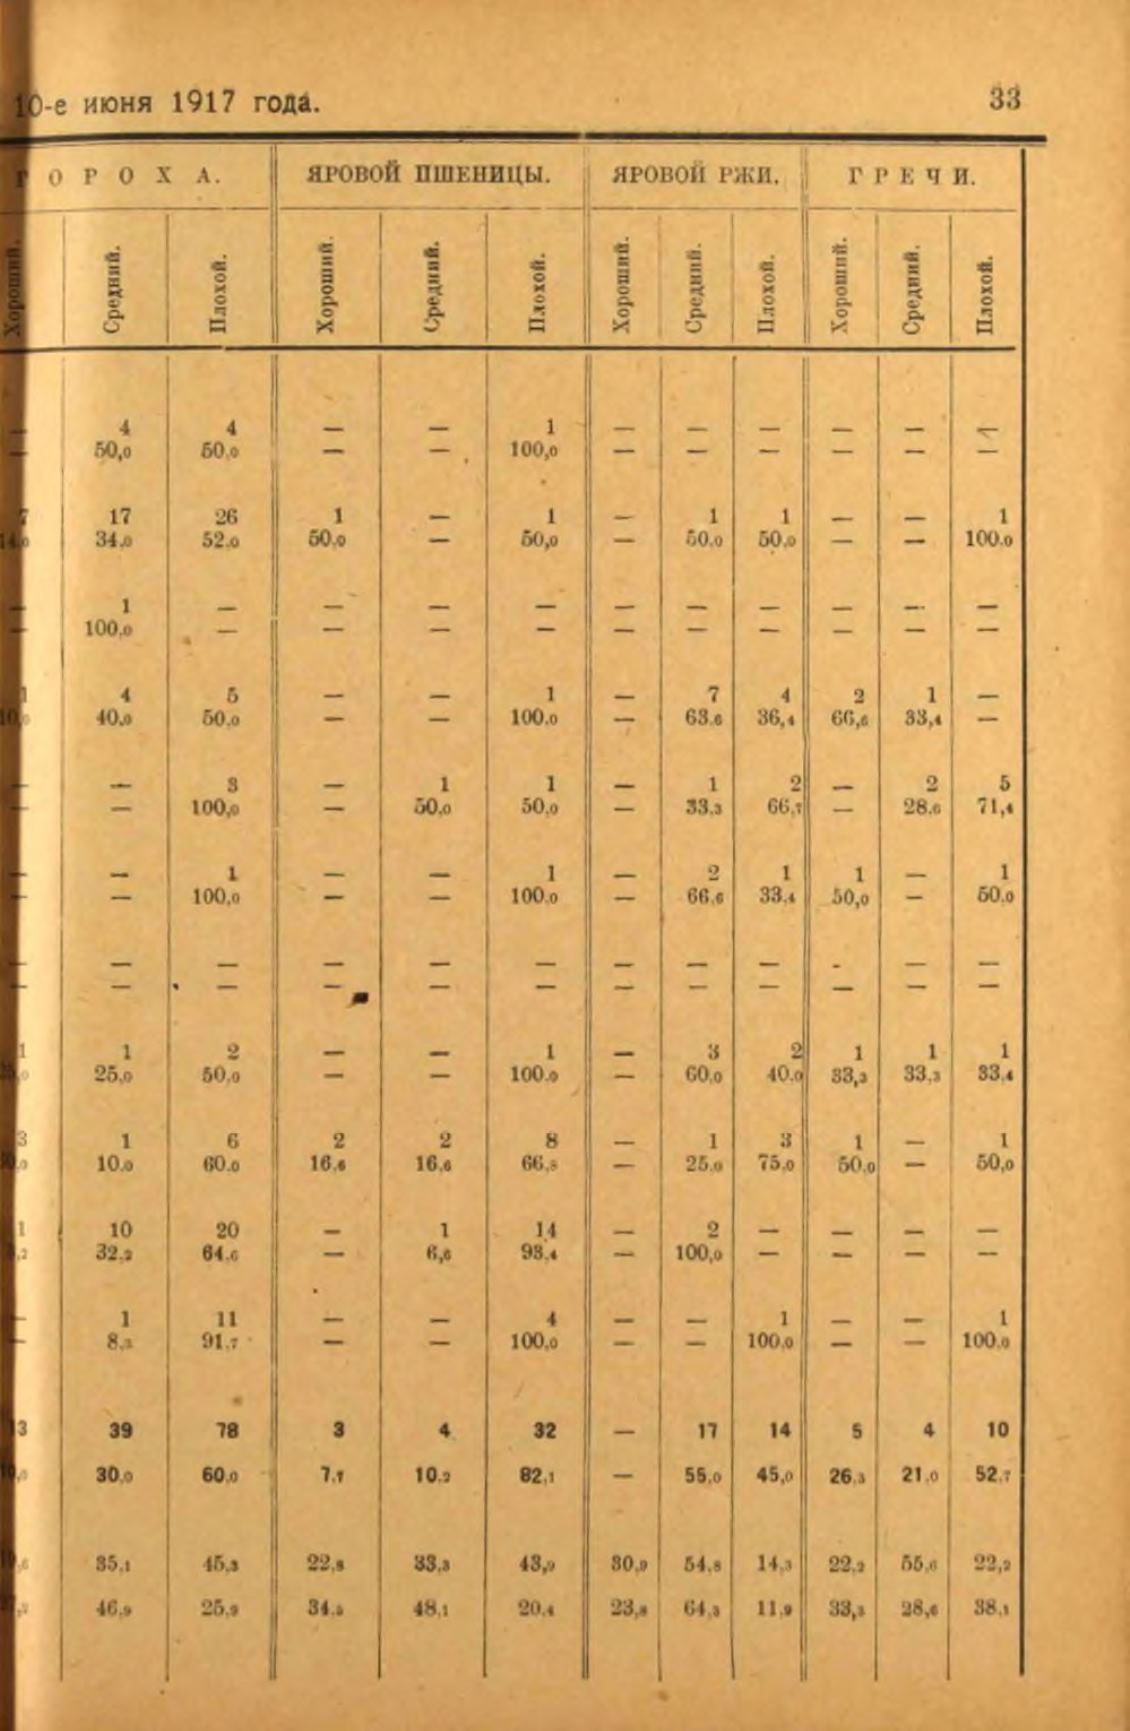 10-е июня 1917 года. 33
ГОРОХА. ЯРОВОЙ ПШЕНИЦЫ. ЯРОВОЙ РЖИ. ГРЕЧИ.
Хороший. Средний. Плохой. Хороший. Средний. Плохой. Хороший. Средний. Плохой. Хороший. Средний. Плохой.
— 4 4 — — 1 — — — — — —
— 50,0 50,0 — — 100,0 — — — — — —
7 17 26 1 — 1 — 1 1 — — 1
14,0 34,0 52,0 50,0 — 50,0 — 50,0 50,0 — — 100,0
— 1 — — — — — — — — — —
— 100,0 — — — — — — — — — —
1 4 5 — — 1 — 7 4 2 1 —
10,0 40,0 50,0 — — 100,0 — 63,6 36,4 66,6 33,4 —
— — 3 — 1 1 — 1 2 — 2 5
— — 100,0 — 50,0 50,0 — 33,3 66,7 — 28,6 71,4
— — 1 — — 1 — 2 1 1 — 1
— — 100,0 — — 100,0 — 66,6 33,4 50,0 — 50,0
— — — — — — — — — - — —
— — — — — — — — — — — —
1 1 2 — — 1 — 3 2 1 1 1
25,0 50,0 — — 100,0 — 60,0 40,0 33,3 33,3 33,4
3 1 6 2 2 8 — 1 3 1 — 1
10,0 60,0 16,6 16,6 66,8 — 25,0 75,0 50,0 — 50,0
1 10 20 — 1 14 — 2 — — — —
32,2 64,6 — 6,6 93,4 — 100,0 — — — —
— 1 11 — — 4 — — 1 — — 1
— 8,3 91,7 — — 100,0 — — 100,0 — — 100,0
39 78 3 4 32 — 17 14 5 4 10
30,0 60,0 7,7 10,2 82,1 — 55,0 45,0 26,3 21,0 52,7
35,1 45,3 22,8 33,3 43,9 30,9 54,8 14,3 22,2 55,6 22,2
46,9 25,9 34,5 48,1 20,4 23,8 64,3 11,9 33,3 28,6 38,1